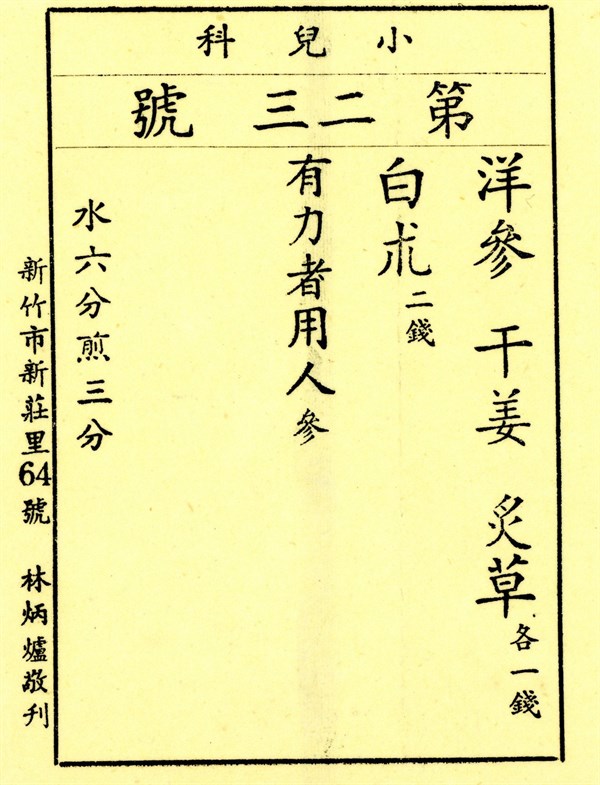 小兒科
第二三號
洋參 干姜 炙草各一錢
白朮二錢
有力者用人參
水六分煎三分
新竹市新莊里64號 林炳爐敬刊